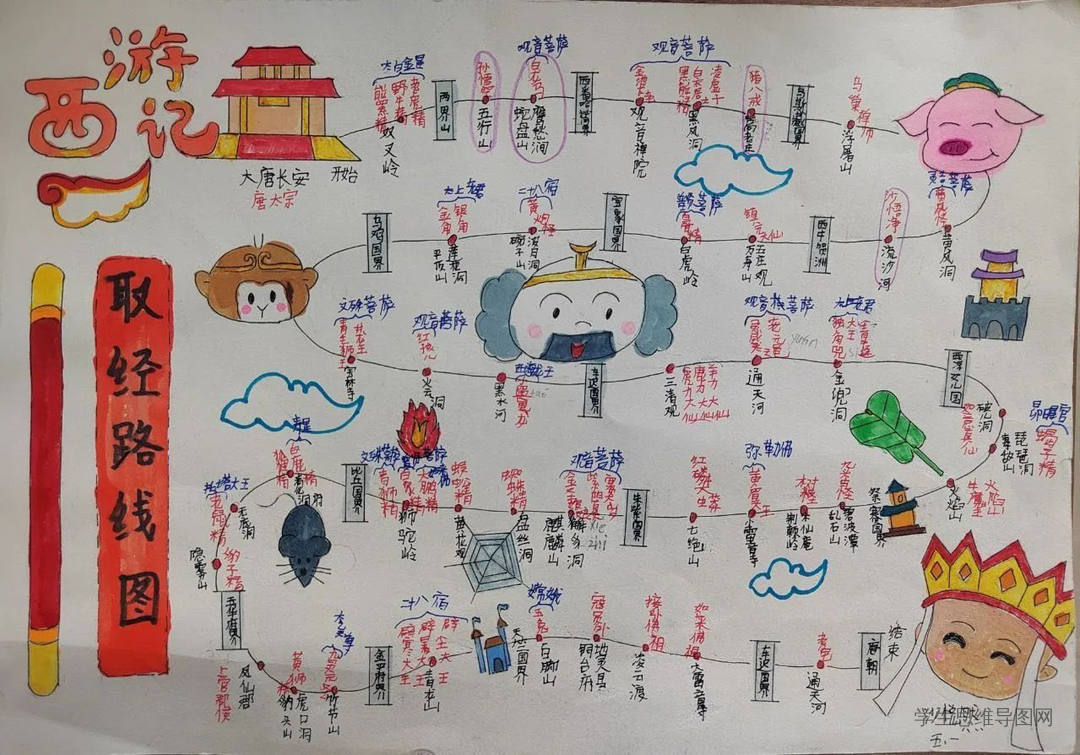 西游记
取经路线图
大唐长安
唐太宗
开始
太白金星
熊罴精
野牛精
老虎精
双叉岭
两界山
孙悟空
五行山
观音菩萨
白龙马
蛇盘山
鹰愁涧
观音菩萨
金池长老
观音禅院
黑熊精
白衣秀士
凌虚子
黑风洞
猪八戒
乌巢禅师
浮屠山
灵吉菩萨
黄风怪
黄风洞
沙悟净
流沙河
西牛贺洲
镇元大仙
万寿山
五庄观
白虎岭
宝象国界
二十八宿
黄袍怪
碗子山
波月洞
太上老君
金角
银角
平顶山
莲花洞
乌鸡国界
文殊菩萨
宝林寺
观音菩萨
红孩儿
火云洞
黑水河
车迟国界
三清观
虎力大仙
鹿力大仙
羊力大仙
通天河
太上老君
金兜洞
西梁女国
昴日星官
蝎子精
琵琶洞
毒敌山
如意真仙
破儿洞
火焰山
牛魔王
祭赛国界
九头怪
乱石山
碧波潭
木仙庵
荆棘岭
弥勒佛
黄眉王
小雷音寺
七绝山
红鳞大蟒
朱紫国界
观音菩萨
麒麟山
獬豸洞
xie
zhi
蜘蛛精
盘丝洞
蜈蚣精
黄花观
文殊菩萨
青狮精
白象精
大鹏精
狮驼岭
比丘国界
寿星
白鹿精
狐狸精
清华洞府
托塔天王
老鼠精
无底洞
豹子精
隐雾山
凤仙郡
上官郡侯
黄狮精
豹头山
虎口洞
九灵元圣
竹节山
金平府界
二十八宿
辟寒大王
辟暑大王
辟尘大王
青龙山
天竺国界
嫦娥
玉兔
寇员外
铜台府
地灵县
接引佛祖
凌云渡
如来佛祖
大雷音寺
车迟国界
老鼋
通天河
唐朝
结束
学生思维导图网
五.一